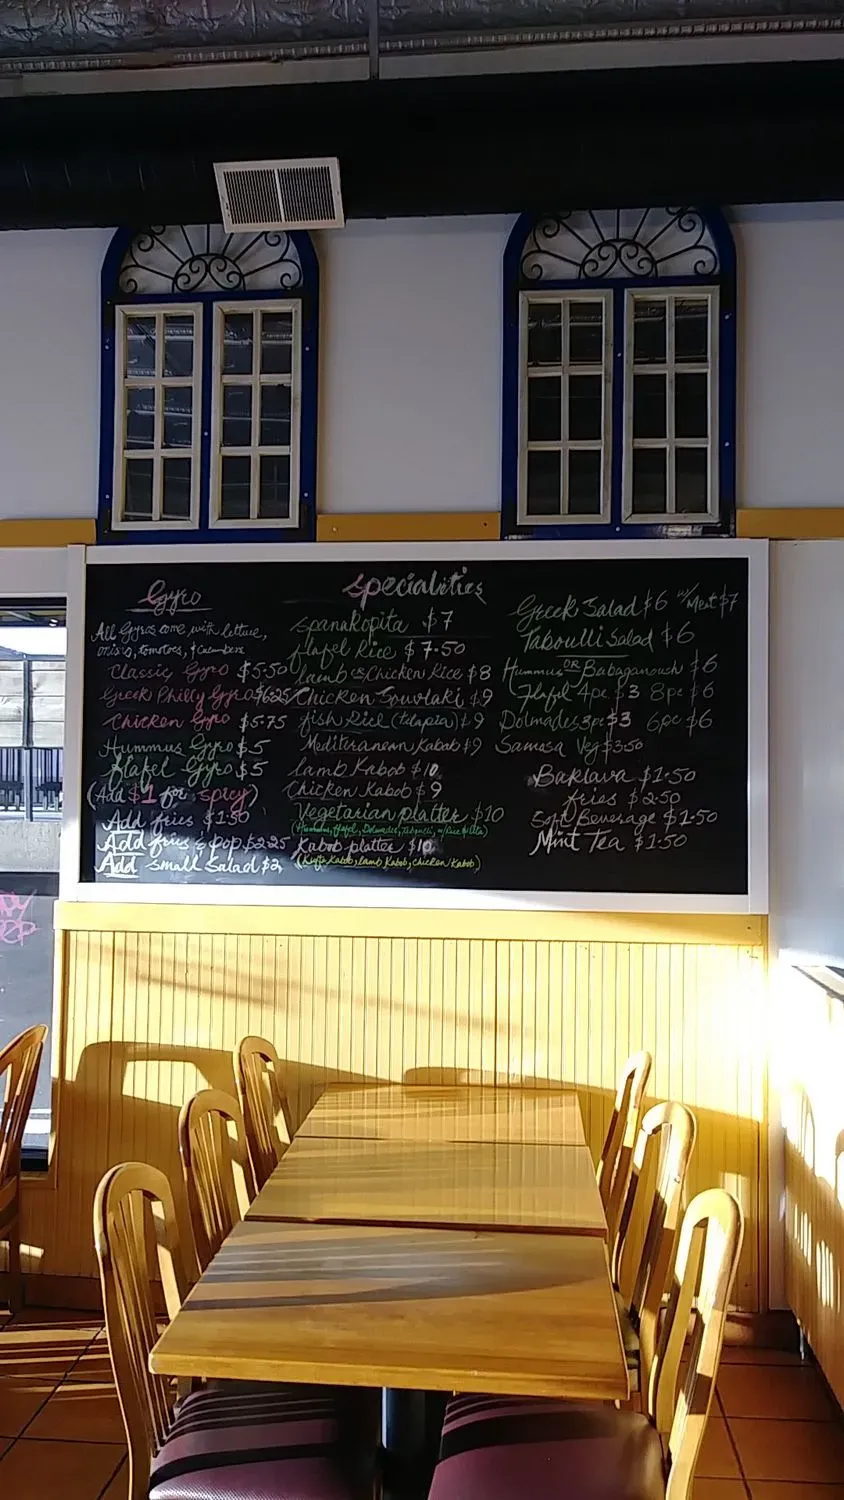 Gyro
All Gyros come with lettuce,
onions, tomatoes, & cucumbers
Classic Gyro $5.50
Greek Philly Gyro $6.25
Chicken Gyro $5.75
Hummus Gyro $5
flafel Gyro $5
(Add $1 for spicy)
Add fries $1.50
Add fries & pop $2.25
Add small Salad $2
specialities
spanakopita $7
flafel Rice $7.50
lamb or Chicken Rice $8
Chicken Souvlaki $9
fish Rice (tilapia) $9
Mediterranean Kabob $9
lamb Kabob $10
Chicken Kabob $9
Vegetarian platter $10
(Hummus, flafel, Dolmades, Tabouli, w/Rice & Pita)
Kabob platter $10
(Kufta Kabob, lamb Kabob, chicken Kabob)
Greek Salad $6 w/ Meat $7
Taboulli Salad $6
Hummus OR Babaganoush $6
flafel 4pc $3 8pc $6
Dolmades 3pc $3 6pc $6
Samosa Veg $3.50
Baklava $1.50
fries $2.50
Soft Beverage $1.50
Mint Tea $1.50